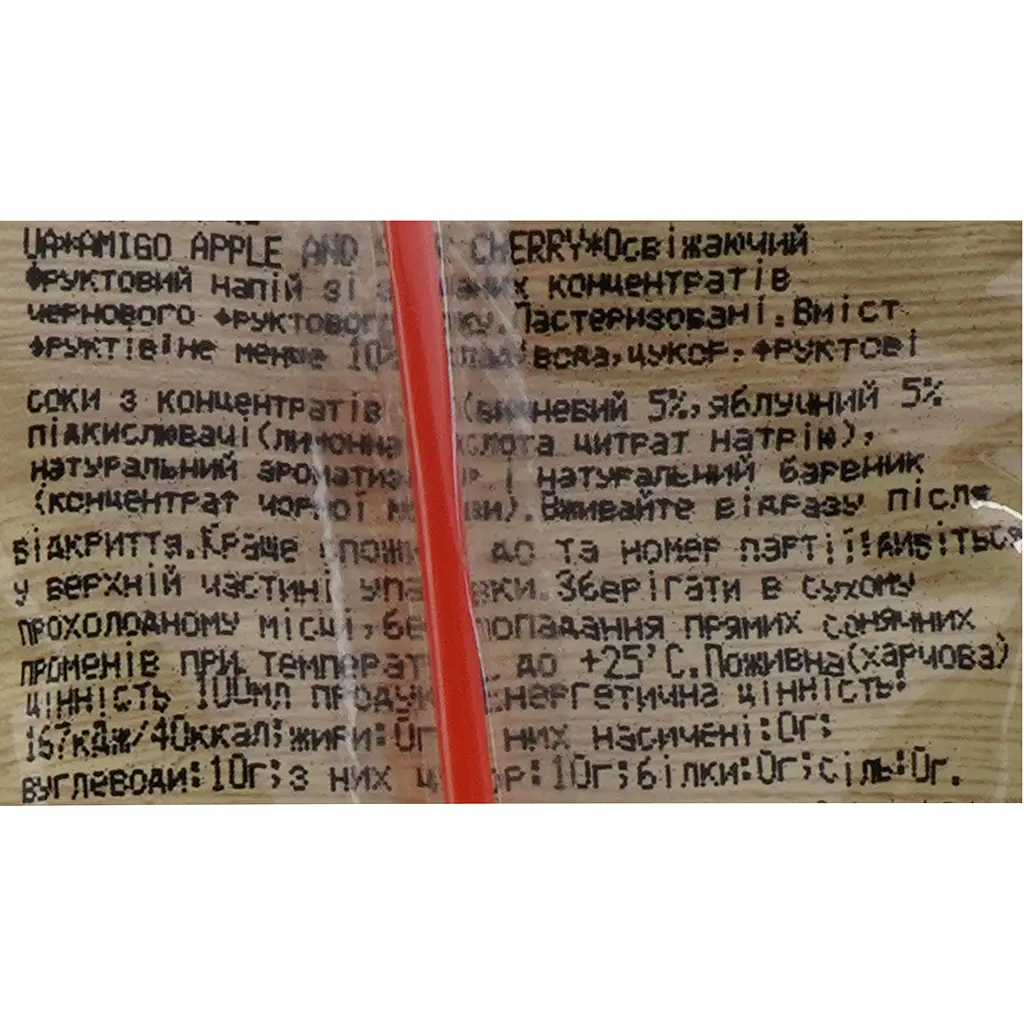 UA*AMIGO APPLE AND CHERRY*Освіжаючий
фруктовий напій зі концентратів
чернового фруктового Пастеризовані. Вміст
фруктів:не менше вода, цукор, фруктові
соки з концентратів (вишневий 5%, яблучний 5%
підкислювачі(лимонна кислота цитрат натрію),
натуральний ароматизатор і натуральний барвник
(концентрат чорної моркви). Вживайте відразу після
відкриття. Краще до та номер партії:дивіться
у верхній частині упаковки. Зберігати в сухому
прохолодному місці, без попадання прямих сонячних
променів при температурі до +25°С. Поживна(харчова)
цінність 100мл продукту Енергетична цінність:
167кДж/40ккал;жири:0г з них насичені:0г;
вуглеводи:10г;з них цукор:10г;білки:0г;сіль:0г.